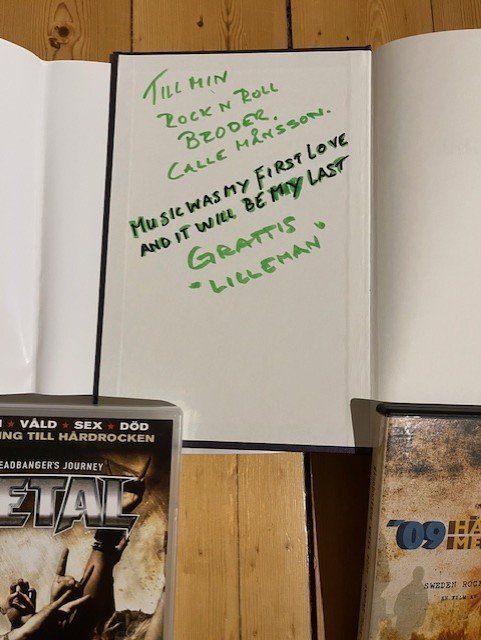 TILL MIN
ROCK N ROLL
BRODER.
CALLE MÅNSSON.
MUSIC WAS MY FIRST LOVE
AND IT WILL BE MY LAST
GRATTIS
"LILLEMAN"
VÅLD ★ SEX ★ DÖD
ING TILL HÅRDROCKEN
EADBANGER'S JOURNEY
ETAL
'09 HÅ
ME
SWEDEN ROC
EN FILM AV